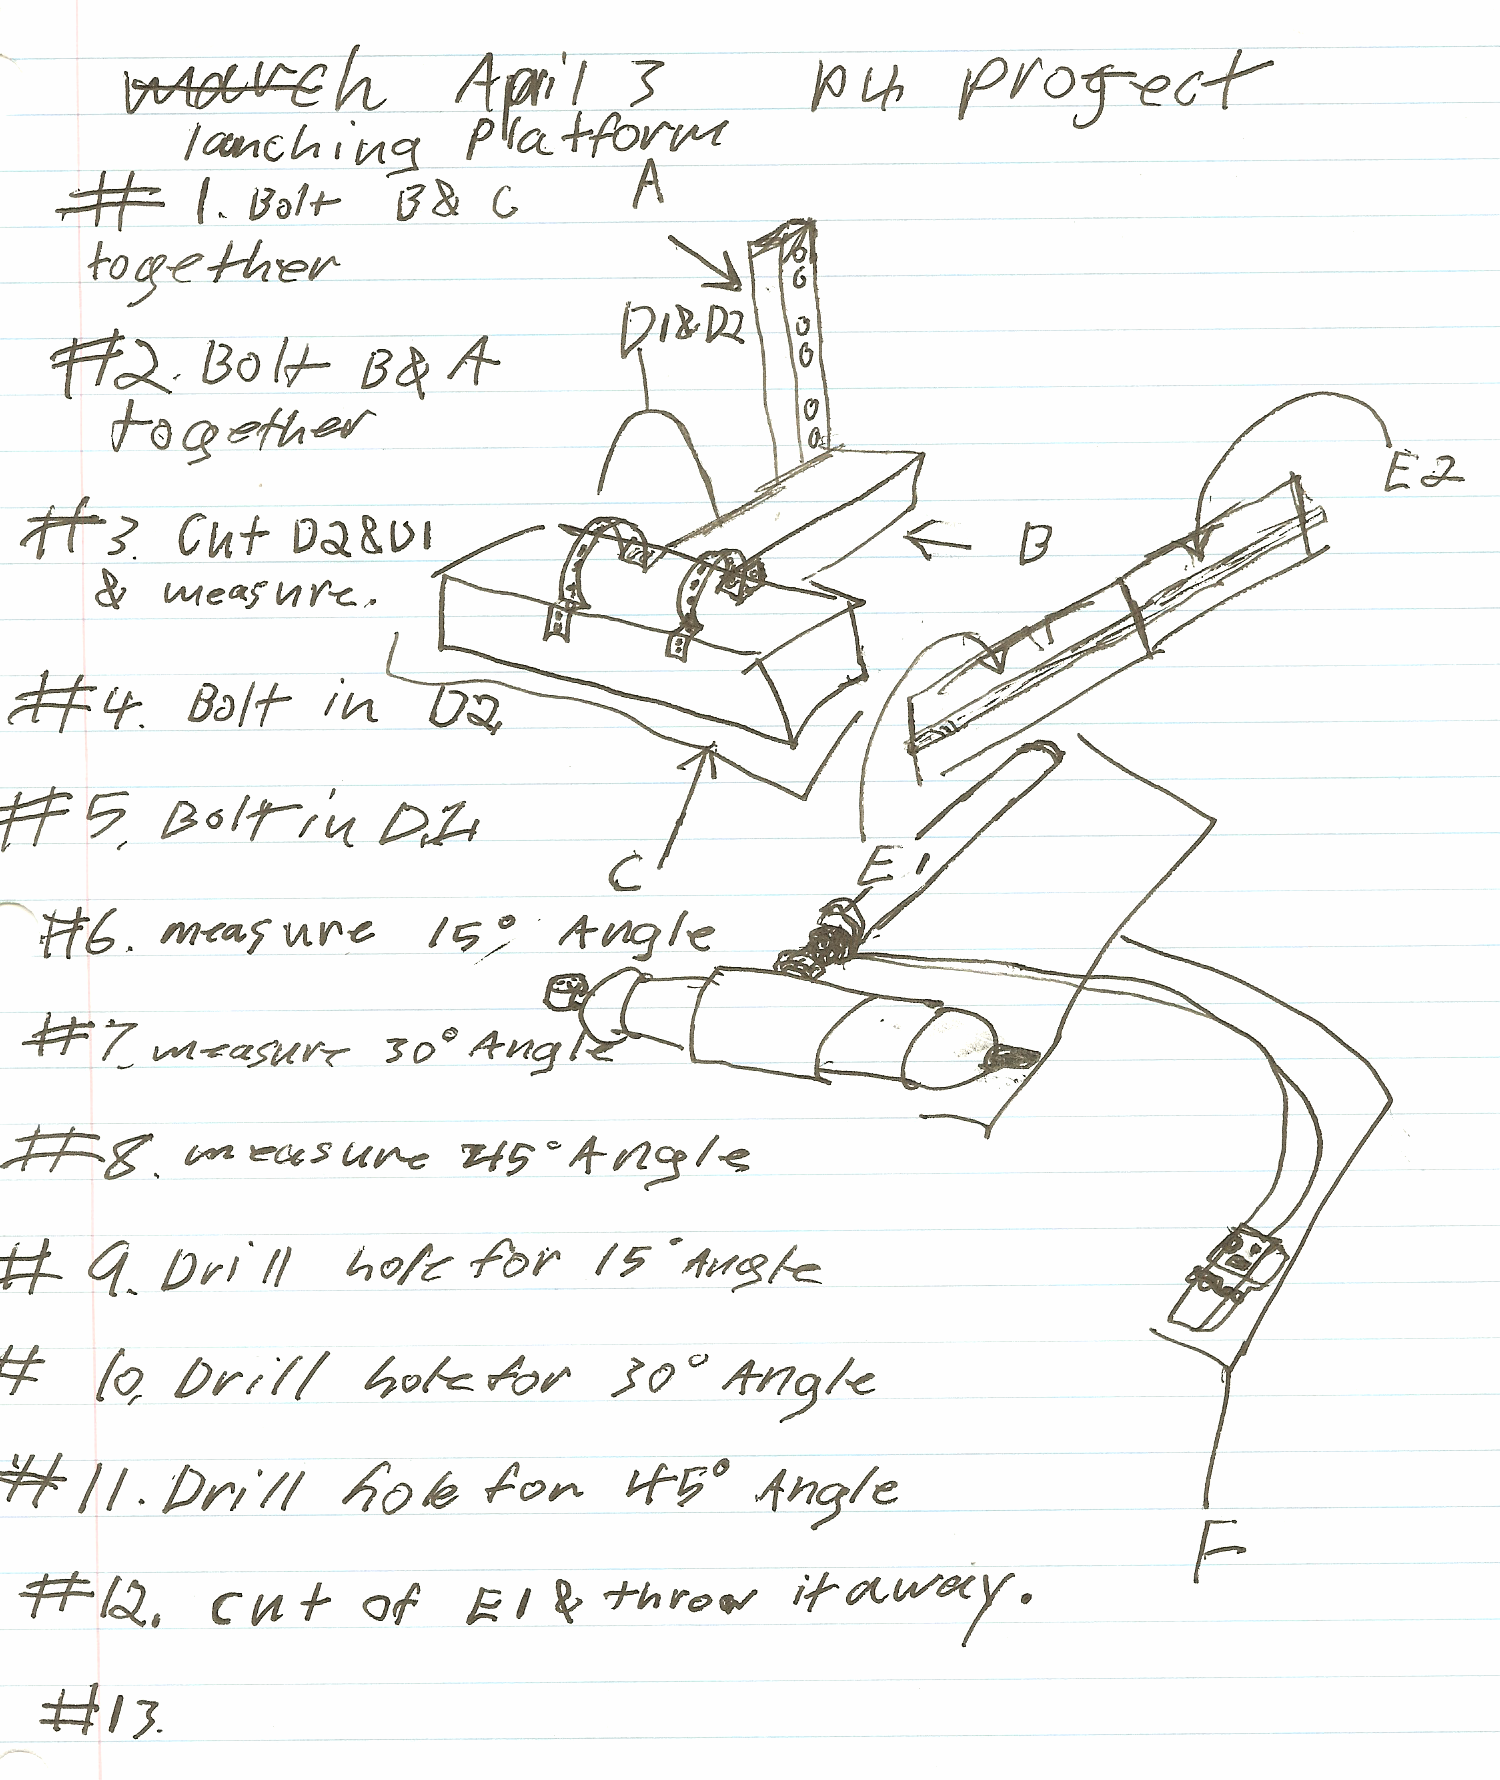 march April 3 P4 progect
lanching Platform
# 1. Bolt B & C
together
#2. Bolt B & A
together
#3. Cut D2 & D1
& measure.
#4. Bolt in D2
#5. Bolt in D1
#6. measure 15° Angle
#7. measure 30° Angle
#8. measure 45° Angle
# 9. Drill hole for 15° Angle
# 10. Drill hole for 30° Angle
#11. Drill hole for 45° Angle
#12. cut of E1 & throw it away.
#13.
A
D1 & D2
E2
B
C
E1
F